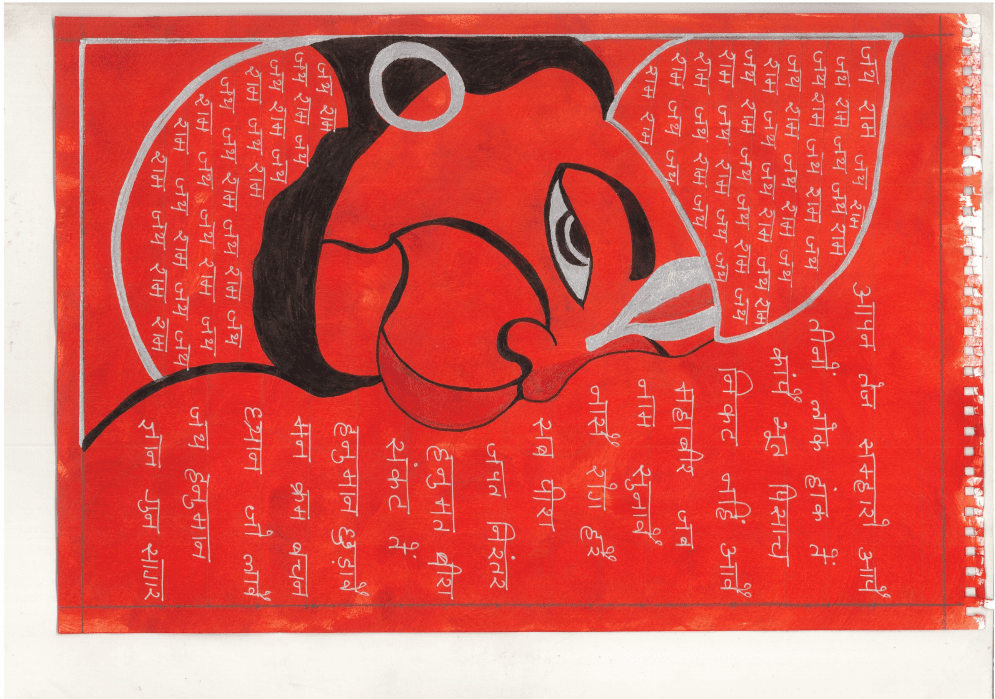 जय राम जय राम
जय राम जय राम
जय राम जय राम जय
जय राम जय राम जय
राम जय जय राम जय राम
जय राम जय जय राम जय
राम जय राम जय जय
राम जय राम जय
राम जय जय
राम राम
जय राम
जय राम जय
जय राम जय
राम जय राम
जय जय राम जय राम जय
राम जय जय राम जय
राम जय राम जय जय
राम जय राम राम
आपन तेज सम्हारो आपै
तीनों लोक हांक तें
कांपै भूत पिसाच
निकट नहिं आवै
महाबीर जब
नाम सुनावै
नासै रोग हरै
सब पीरा
जपत निरंतर
हनुमत बीरा
संकट तें
हनुमान छुड़ावै
मन क्रम बचन
ध्यान जो लावै
जय हनुमान
ज्ञान गुन सागर